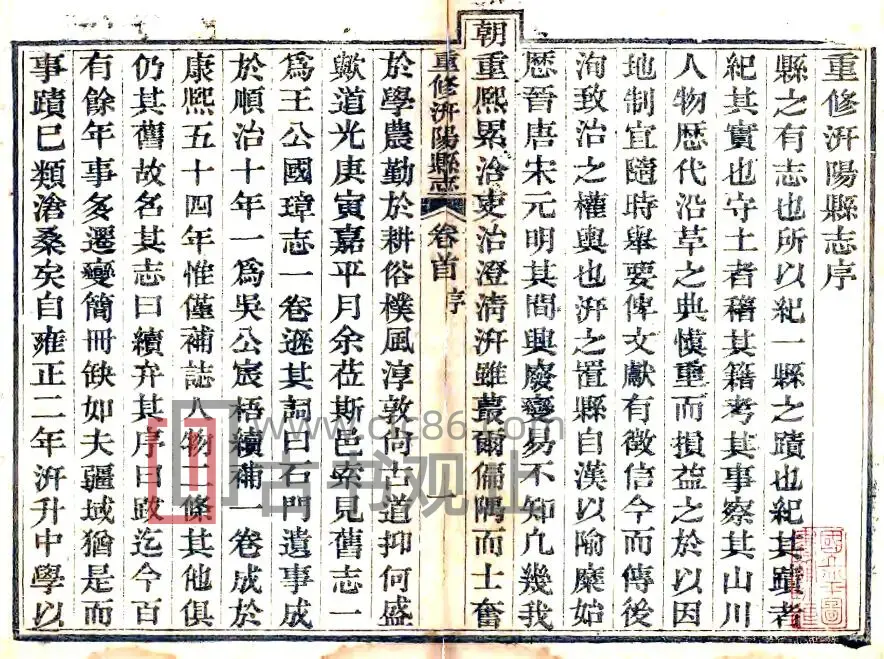 重修汧陽縣志序
縣之有志也所以紀一縣之蹟也紀其蹟者
紀其實也守土者稽其籍考其事察其山川
人物歴代沿革之典慎重而損益之於以因
地制宜隨時舉要俾文獻有徵信今而傳後
洵致治之權輿也汧之置縣自漢以隃糜始
歴晉唐宋元明其間興廢變易不知凢幾我
朝重熙累洽吏治澄清汧雖蕞爾偏隅而士奮
重修汧陽縣志 卷首 序 一
於學農勤於耕俗樸風淳敦尚古道抑何盛
歟道光庚寅嘉平月余莅斯邑索見舊志一
為王公國瑋志一卷遜其詞曰石門遺事成
於順治十年一為吳公宸梧續補一卷成於
康熙五十四年惟僅補誌人物二條其他俱
仍其舊故名其志曰續弁其序曰跋迄今百
有餘年事多遷變簡冊缺如夫疆域猶是而
事蹟已類滄桑矣自雍正二年汧升中學以
www.cjc86.com
古书观止